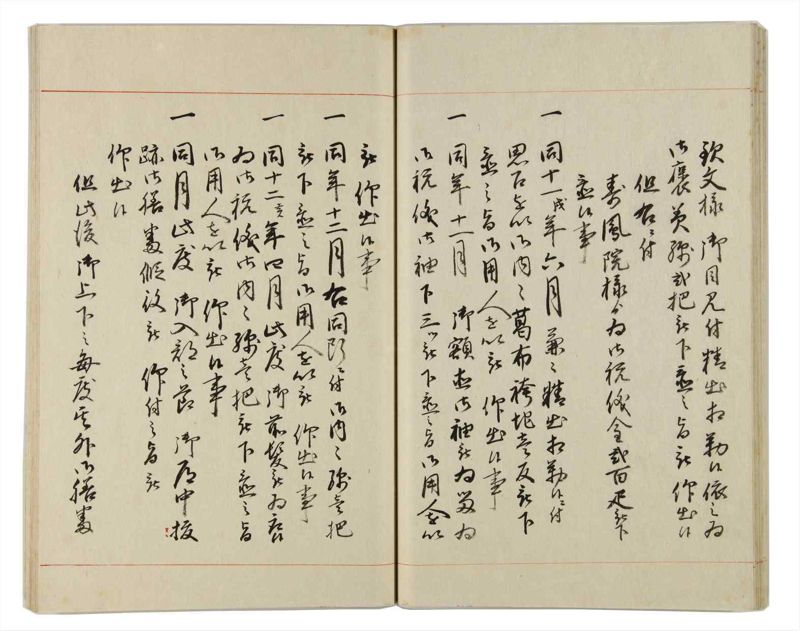 欽文様 御目見付精出相勤候依之為
御褒美綿弐把被下置之旨被 仰出候
但右ニ付
寿鳳院様ゟ為御祝儀金弐百疋被下
置候事
一 同十一戌年六月 兼々精出相勤候ニ付
思召を以御内々葛布袴地壱反被下
置之旨御用人を以被 仰出候事
一 同年十一月 御額直御袖留為
御祝儀御袖下三ツ被下置之旨御用人を以
被 仰出候事
一 同年十二月右同断ニ付御内々綿壱把
被下置之旨御用人を以被 仰出候事
一 同十二亥年四月此度御前髪被為
為御祝儀御内々綿壱把被下置之旨
御用人を以被 仰出候事
一 同月此度 御入部之節 御道中
跡御膳番仮役被 仰付之旨被
仰出候
但此後御上下之毎度其外御膳番